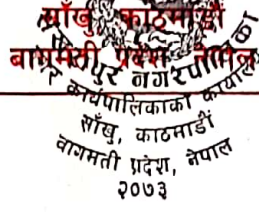 साँखु, काठमाडौं
बागमती प्रदेश, नेपाल
नगरपालिका
कार्यपालिकाको कार्यालय
साँखु, काठमाडौं
वागमती प्रदेश, नेपाल
२०७३